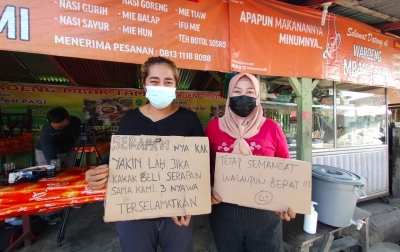 NASI GURIH
NASI SAYUR
MIE GORENG
MIE BALAP
MIE HUN
MIE TIAW
IFU MIE
TEH BOTOL SOSRO
MENERIMA PESANAN : 0813 1118 8098
APAPUN MAKANANNYA
MINUMNYA...
Selamat Datang di
WAROENG
MBAK
WAROENG MBAK
SERAPAN NYA KAK
YAKIN LAH JIKA
KAKAK BELI SERAPAN
SAMA KAMI. 3 NYAWA
TERSELAMATKAN
TETAP SEMANGAT
WALAUPUN BERAT !!!